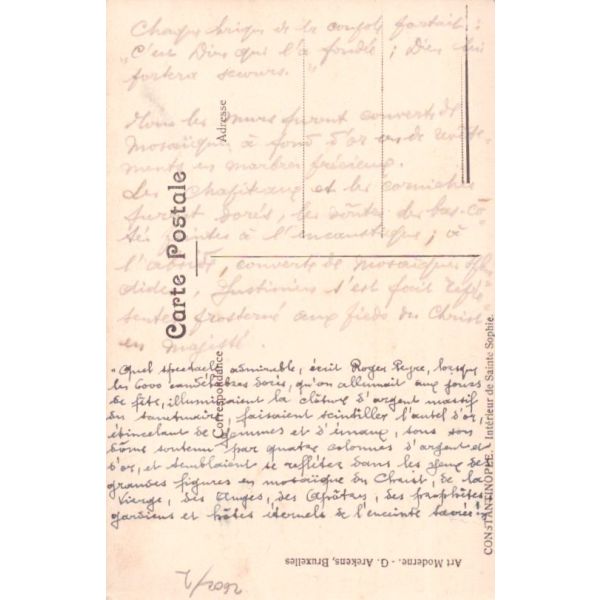 Chaque brique de la coupole portait :
"C'est Dieu qui l'a fondée ; Dieu lui
portera secours."
Tous les murs furent couverts de
Mosaïques à fond d'or ou de revête-
ments en marbres précieux.
Les chapiteaux et les corniches
furent dorés, les voûtes des bas-cô-
tés peintes à l'encaustique ; à
l'abside, couverte de Mosaïques splen-
dides, Justinien s'est fait repré-
senter prosterné aux pieds du Christ
en majesté.
"Quel spectacle admirable, écrit Roger Peyre, lorsque
les 6000 candélabres dorés, qu'on allumait aux jours
de fête, illuminaient la clôture d'argent massif
du sanctuaire, faisaient scintiller l'autel d'or,
étincelant de gemmes et d'émaux, sous son
dôme soutenu par quatre colonnes d'argent et
d'or, et semblaient se refléter dans les yeux de
grandes figures en mosaïque du Christ, de la
Vierge, des Anges, des Apôtres, des prophètes
gardiens et hôtes éternels de l'enceinte sacrée."
Carte Postale
Correspondance
Adresse
CONSTANTINOPLE. - Intérieur de Sainte Sophie.
Art Moderne. - G. Arekens, Bruxelles